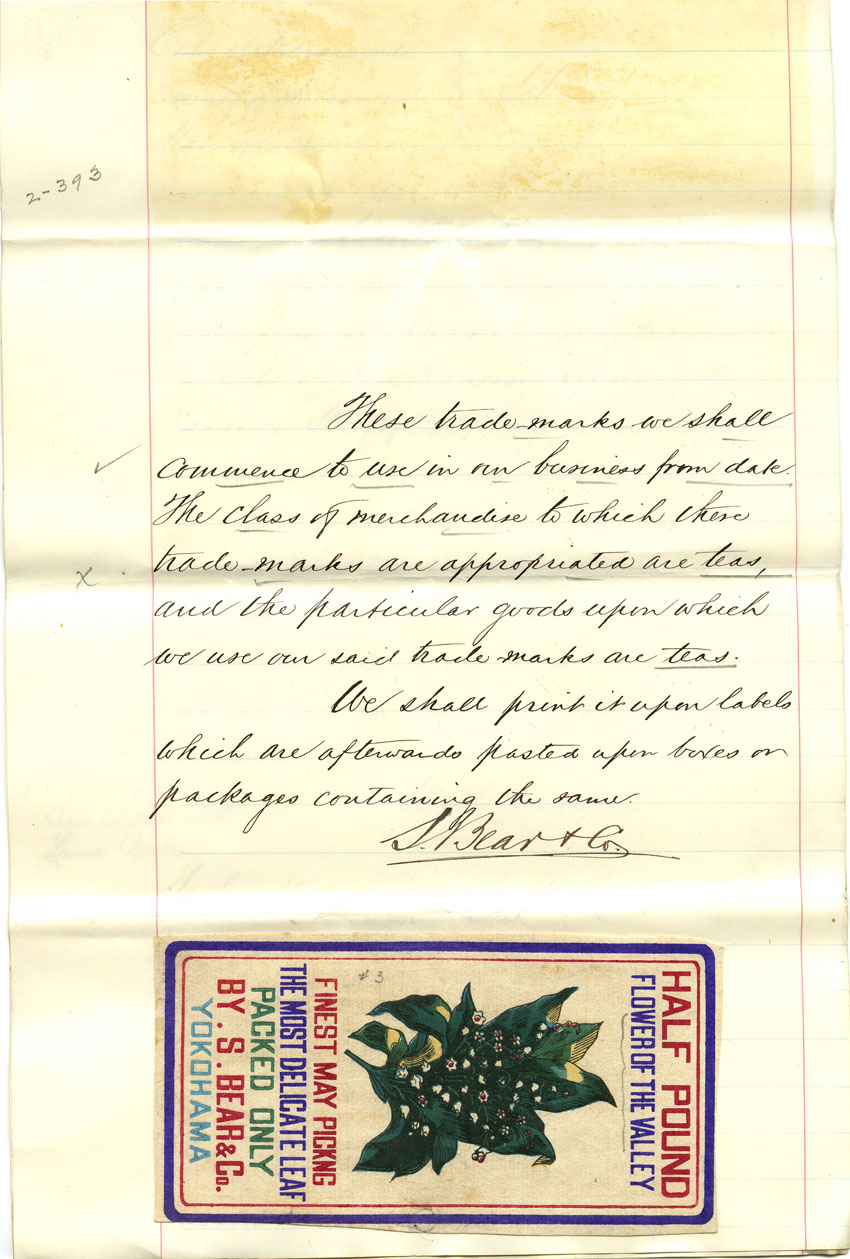 2-393
These trade-marks we shall
commence to use in our business from date.
The class of merchandise to which these
trade-marks are appropriated are teas,
and the particular goods upon which
we use our said trade marks are teas.
We shall print it upon labels
which are afterwards pasted upon boxes or
packages containing the same.
S. Bear & Co.
HALF POUND
FLOWER OF THE VALLEY
#3
FINEST MAY PICKNG
THE MOST DELICATE LEAF
PACKED ONLY
BY . S. BEAR & Co.
YOKOHAMA